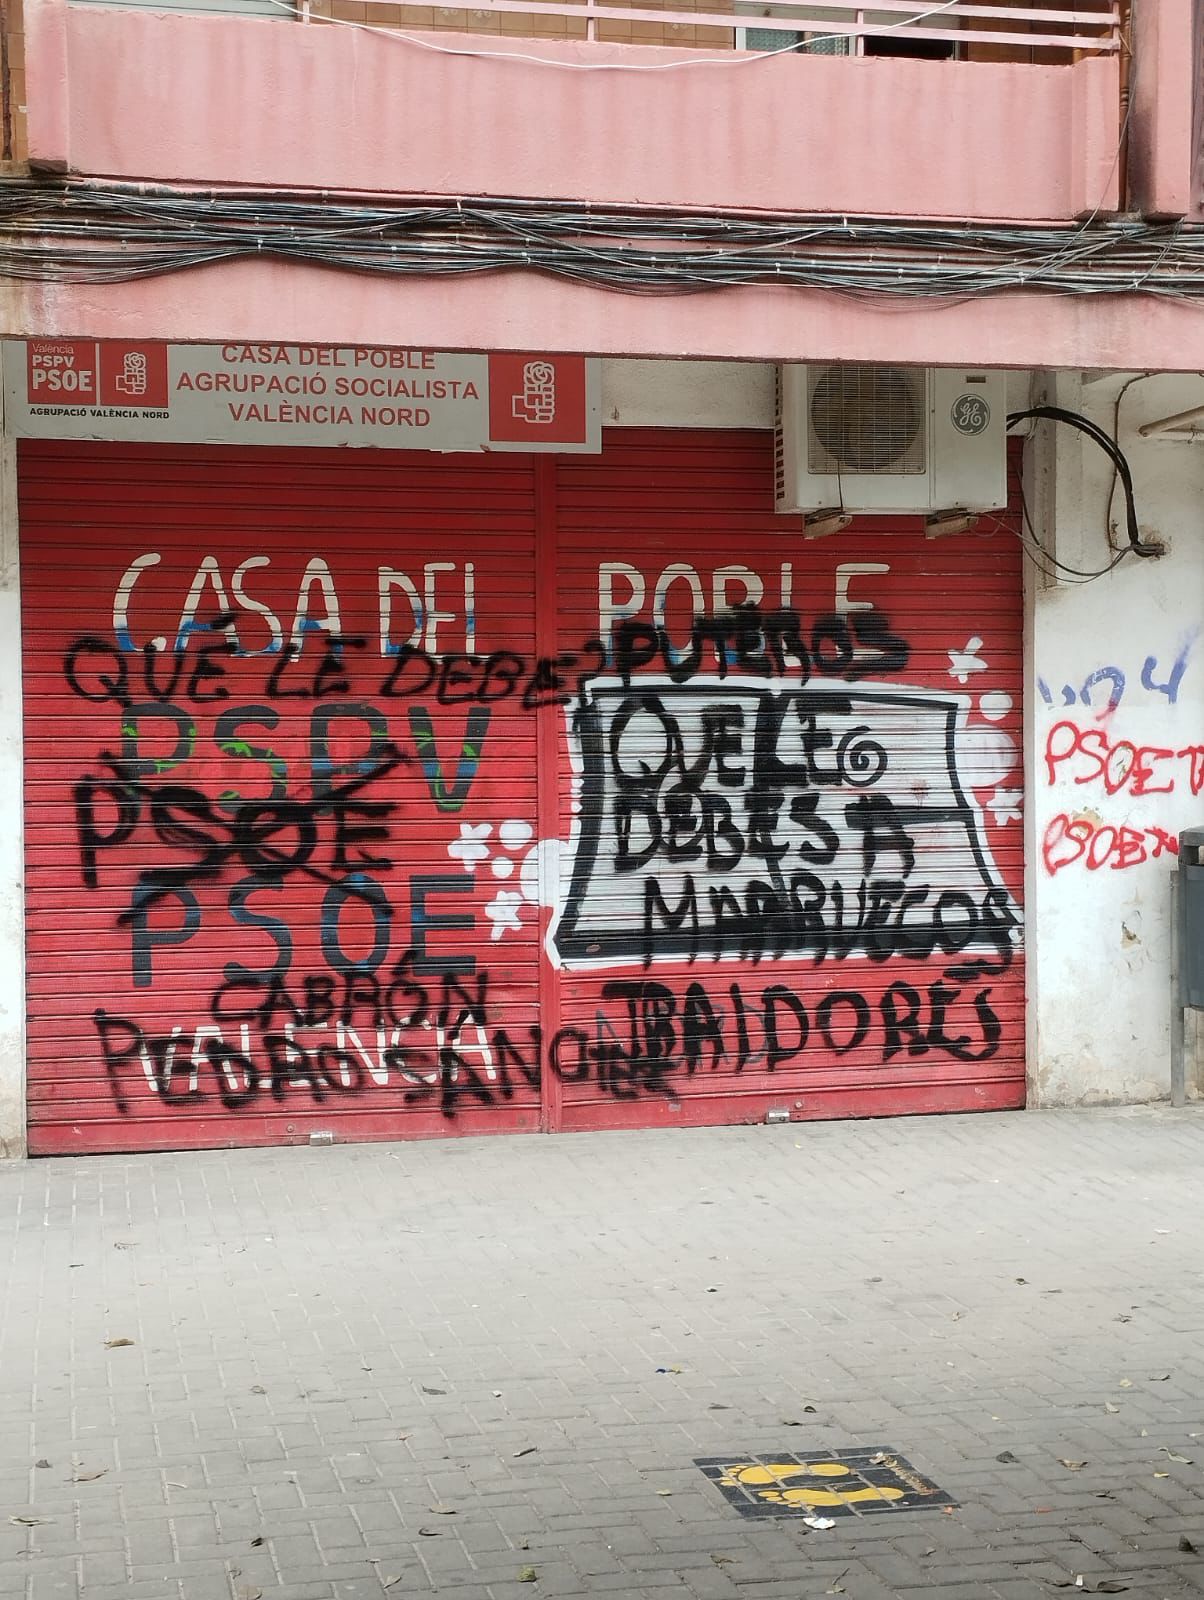 València
PSPV
PSOE
AGRUPACIÓ VALÈNCIA NORD
CASA DEL POBLE
AGRUPACIÓ SOCIALISTA
VALÈNCIA NORD
GE
CASA DEL POBLE
QUE LE DEBES PUTEROS
PSPV
PSOE
PSOE
QUE LE
DEBES A
MARRUECOS
CABRÓN
VALENCIA
PUDRO SANO
TRAIDORES
PSOE
PSOE